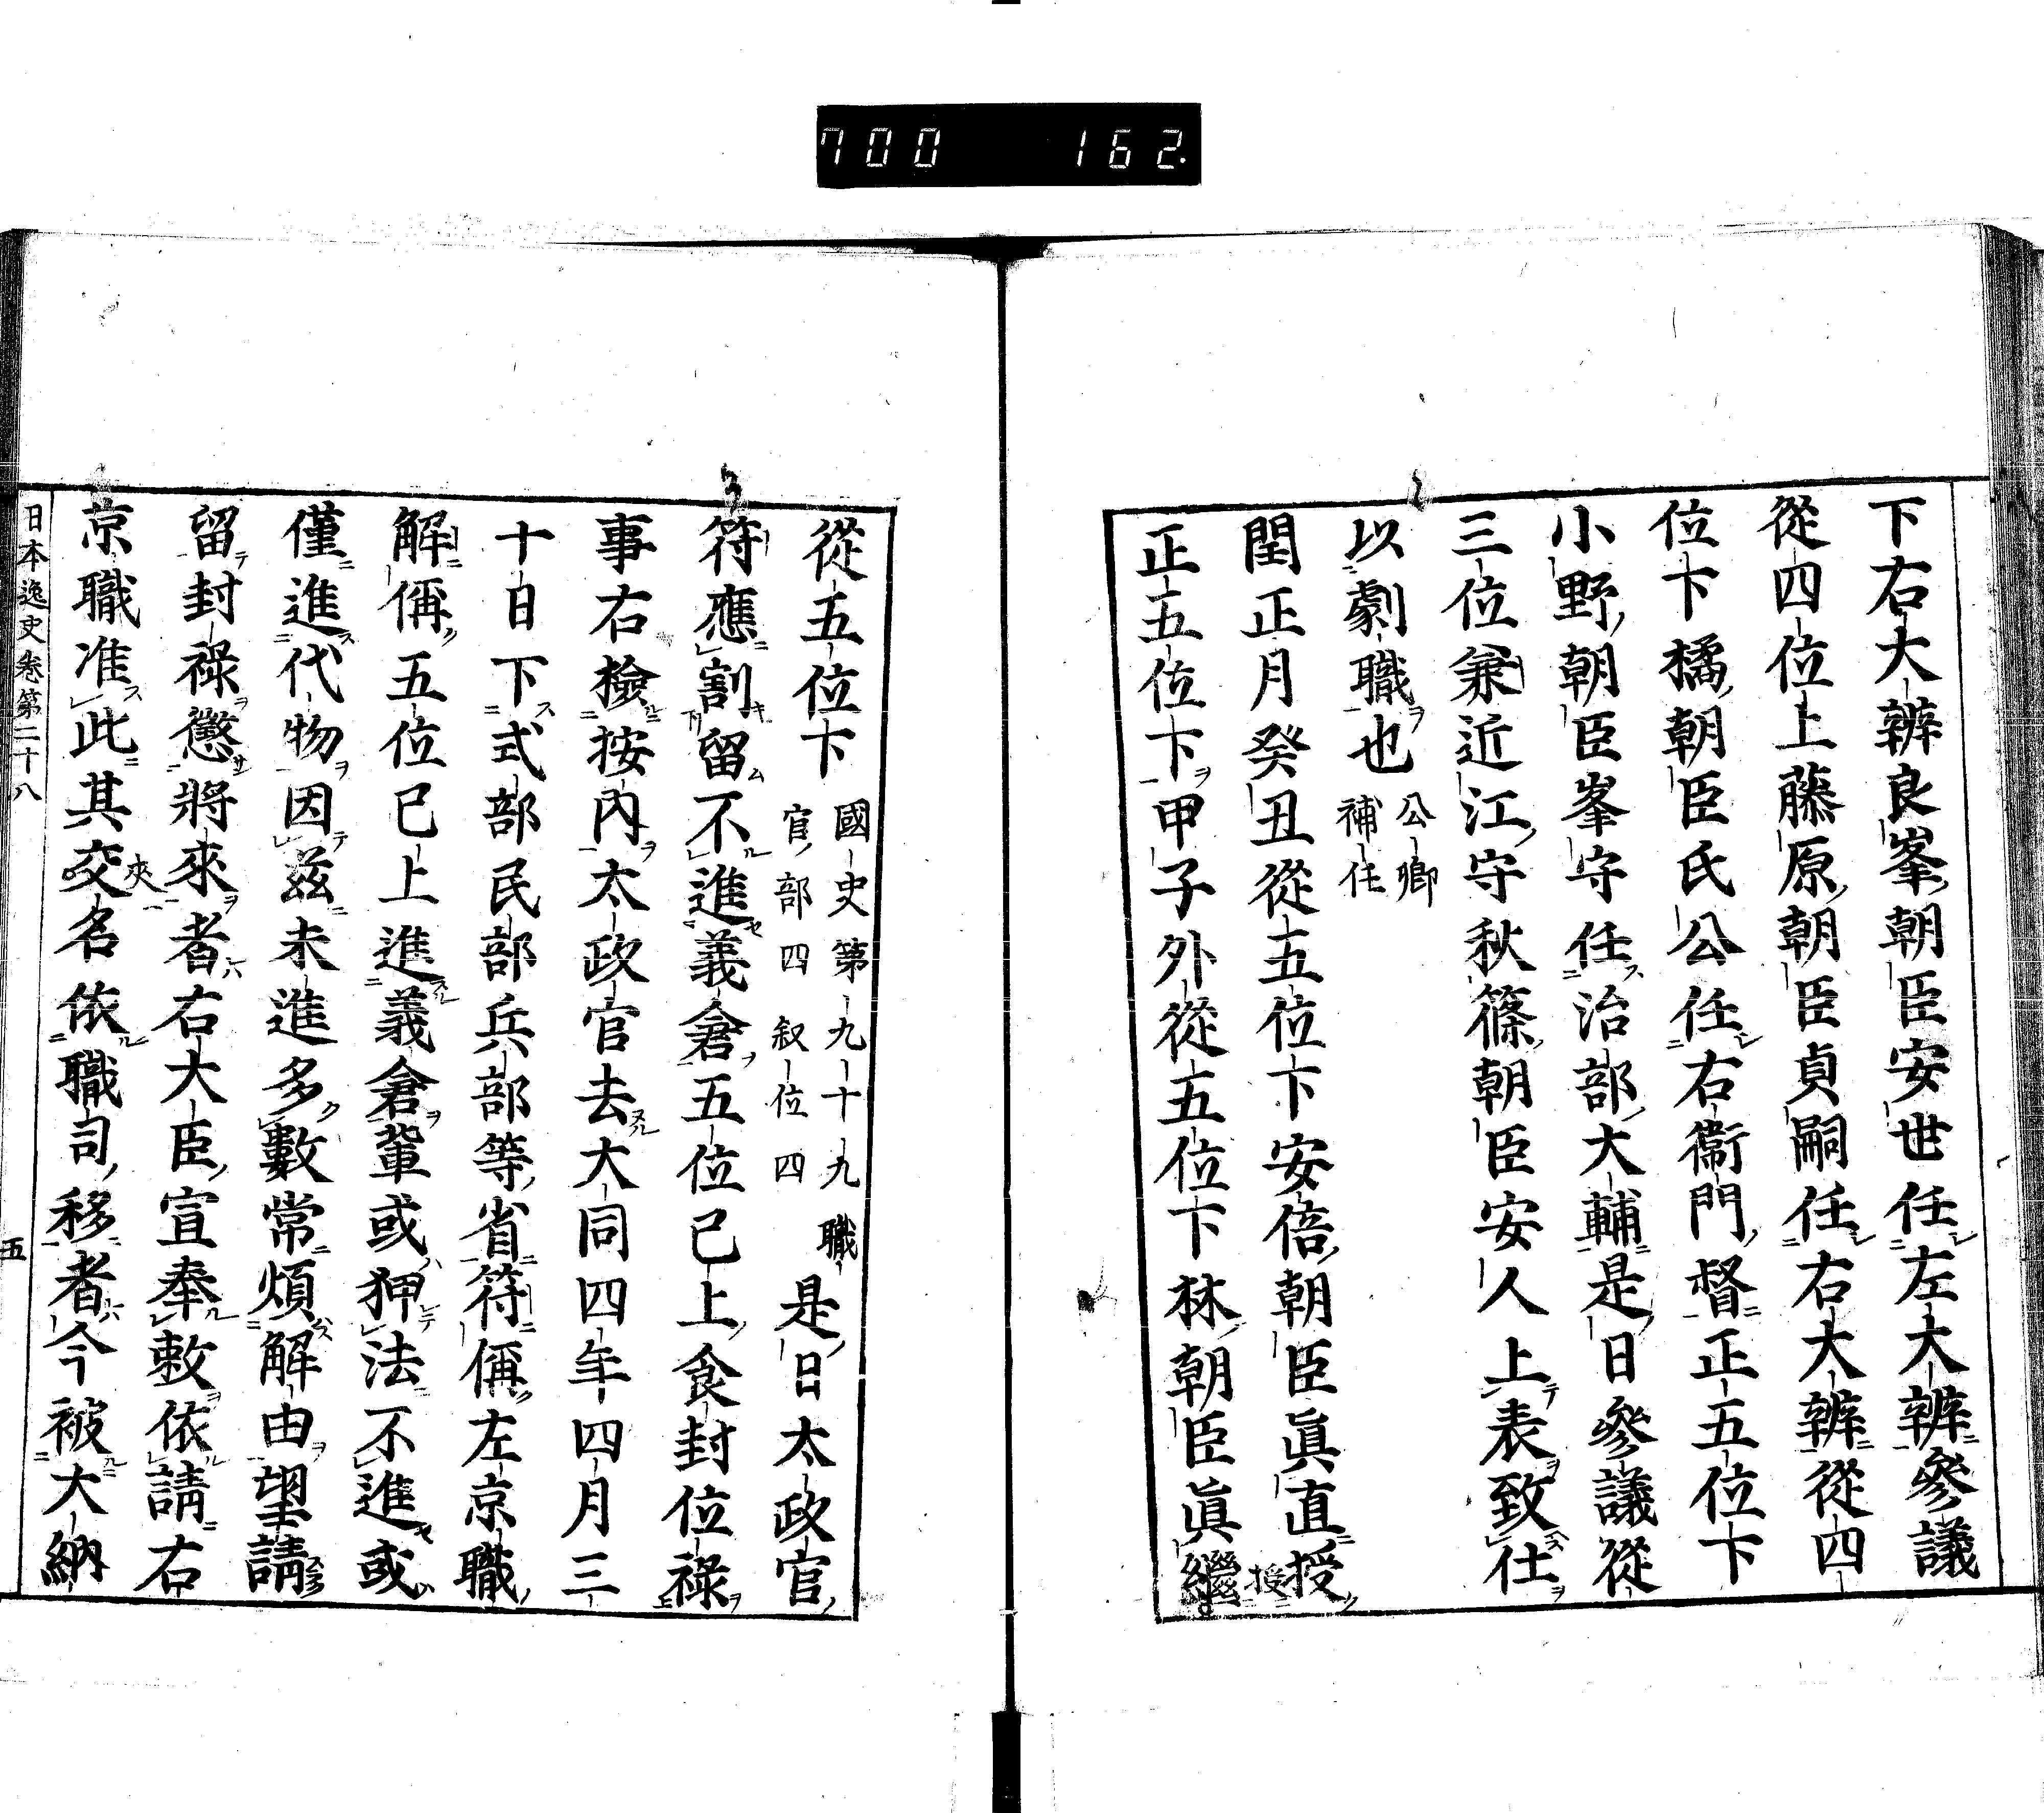 700 162.
下右大辨良峯朝臣安世任左大辨參議
從四位上藤原朝臣貞嗣任右大辨從四
位下橘朝臣氏公任右衞門督正五位下
小野朝臣峯守任治部大輔是日參議從
三位兼近江守秋篠朝臣安人上表致仕
以劇職也
公卿
補任
閏正月癸丑從五位下安倍朝臣眞直授
正五位下甲子外從五位下林朝臣眞繼
授
從五位下
國史第九十九職
官部四叙位四
是日太政官
符應割留不進義倉五位已上食封位祿
事右檢按內太政官去大同四年四月三
十日下式部民部兵部等省符偁左京職
解偁五位已上進義倉輩或狎法不進或
僅進代物因茲未進多數常煩解由望請
留封祿懲將來者右大臣宣奉敕依請右
京職准此其交名依職司移者今被大納
夾
日本逸史卷第二十八
五